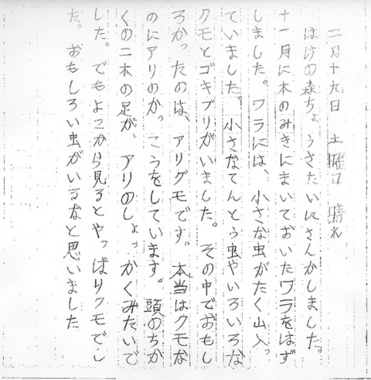 二月十九日 土曜日 晴れ
はけの森ちょうさたいにさんかしました。
十一月に木のみきにまいておいたワラをはず
しました。ワラには、小さな虫がたく山入っ
ていました。小さなてんとう虫やいろいろな
クモとゴキブリがいました。その中でおもし
ろかったのは、アリグモです。本当はクモな
のにアリのかっこうをしています。頭のちか
くの二本の足が、アリのしょっかくみたいで
した。でもよこから見るとやっぱりクモでし
た。おもしろい虫がいるなと思いました